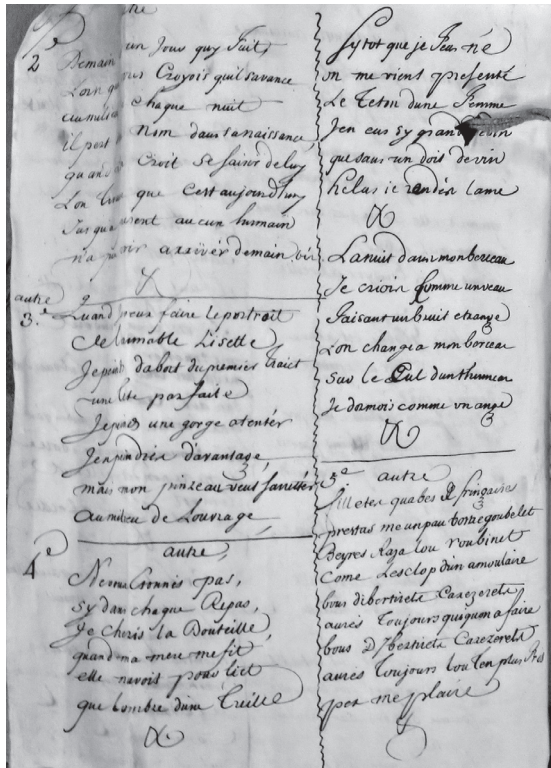 2e
Demain un Jour quy fuit,
Lon Croyois quil savance
chaque nuit
il port nom dans sa naissance,
quand Croit se saisir deluy
Lon que Cest aujourdhuy
Jusque aucun humain
na arriver demain
autre
3e Quand peux faire le portroit
de laimable Lisette
Je peins dabort du premier traict
une tete parfaite
Je peins une gorge a tenter
Jen pindrés davantage
mais mon pinzeau veut sarreter
au milieu de Louvrage
autre
4e
Ne vous étonnés pas,
sy dans chaque Repas,
Je cheris la Bouteille,
quand ma mere me fit
elle navoit pour lict
que lombre dune treille
Sytot que je feus né
on me viens presenté
Le teton dune femme
Jen eus sy grand
que sans un dois de vin
helas je rendés lame
La nuit dans mon berceau
Je criois Comme un veau
faisant un bruit etrange
Lon changea mon berceau
sur le Cul dun thonneau
Je dormois comme un ange
5e autre
prestas me un pau bostre goubelet
Beyres Raja lou roubinet
Come Lesclop dun amoulaire
bous dibertirets Carezerets
aurés toujours quiquon a faire
bous Carezerets
aurés toujours lou ten plus
per me plaire